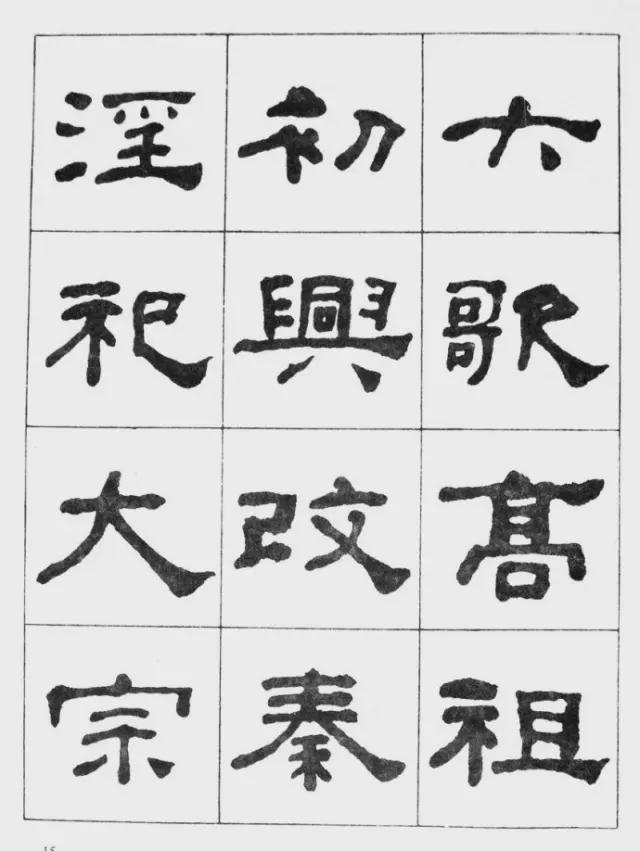 六歌高祖
初興改秦
淫祀大宗
15